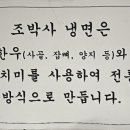 조박사 냉면은
한우(사골, 잡뼈, 양지 등)와
치미를 사용하여 전통
방식으로 만듭니다.